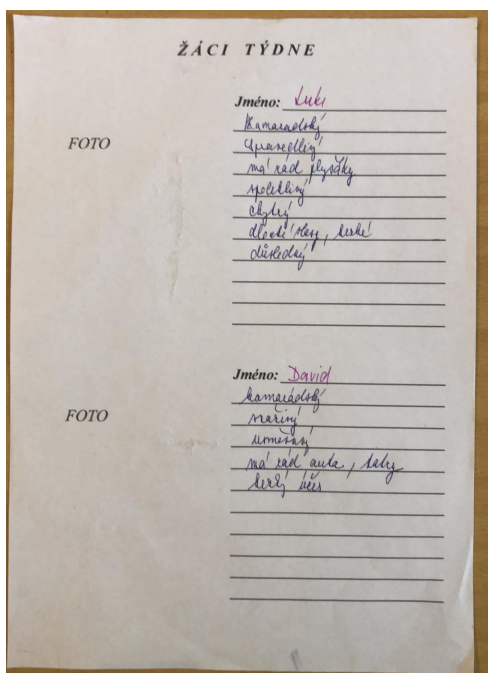 ŽÁCI TÝDNE
FOTO
Jméno: Luki
Kamarádský
spravedlivý
má rád plyšáky
spolehlivý
chytrý
dlouhé vlasy, hezké
důsledný
Jméno: David
FOTO
kamarádský
snaživý
usměvavý
má rád auta, tatry
hezký účes